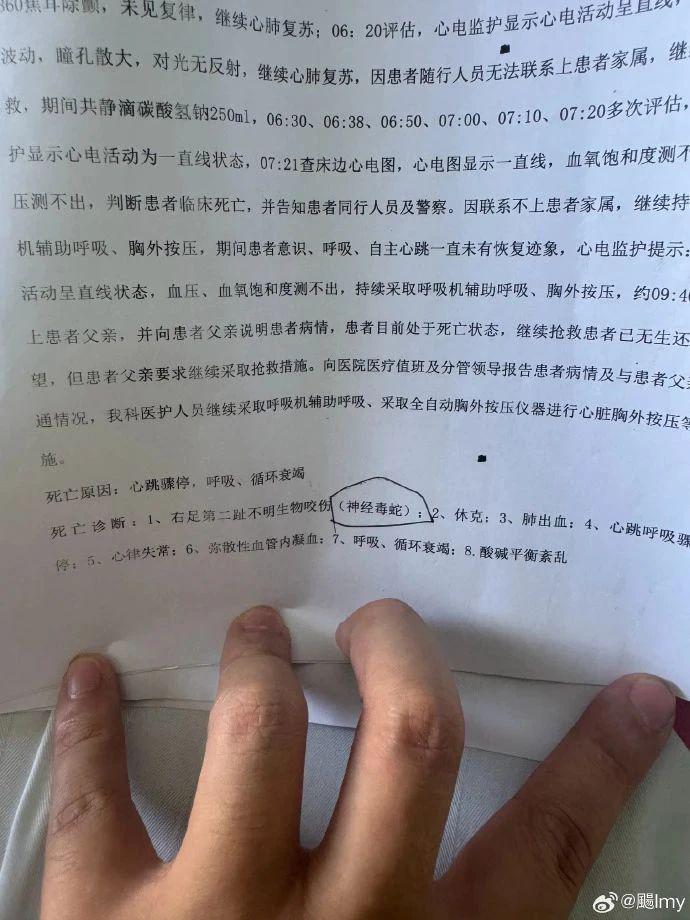 360焦耳除颤，未见复律，继续心肺复苏；06：20评估，心电监护显示心电活动呈直线，
波动，瞳孔散大，对光无反射，继续心肺复苏，因患者随行人员无法联系上患者家属，继
救，期间共静滴碳酸氢钠250ml，06:30、06:38、06:50、07:00、07:10、07:20多次评估，
护显示心电活动为一直线状态，07:21查床边心电图，心电图显示一直线，血氧饱和度测不
压测不出，判断患者临床死亡，并告知患者同行人员及警察。因联系不上患者家属，继续持
机辅助呼吸、胸外按压，期间患者意识、呼吸、自主心跳一直未有恢复迹象，心电监护提示：
活动呈直线状态，血压、血氧饱和度测不出，持续采取呼吸机辅助呼吸、胸外按压，约09:40
上患者父亲，并向患者父亲说明患者病情，患者目前处于死亡状态，继续抢救患者已无生还
望，但患者父亲要求继续采取抢救措施。向医院医疗值班及分管领导报告患者病情及与患者父亲
通情况，我科医护人员继续采取呼吸机辅助呼吸、采取全自动胸外按压仪器进行心脏胸外按压等
施。
死亡原因：心跳骤停，呼吸、循环衰竭
死亡诊断：1、右足第二趾不明生物咬伤（神经毒蛇）；2、休克；3、肺出血；4、心跳呼吸骤
停；5、心律失常；6、弥散性血管内凝血；7、呼吸、循环衰竭；8.酸碱平衡紊乱
@颺lmy